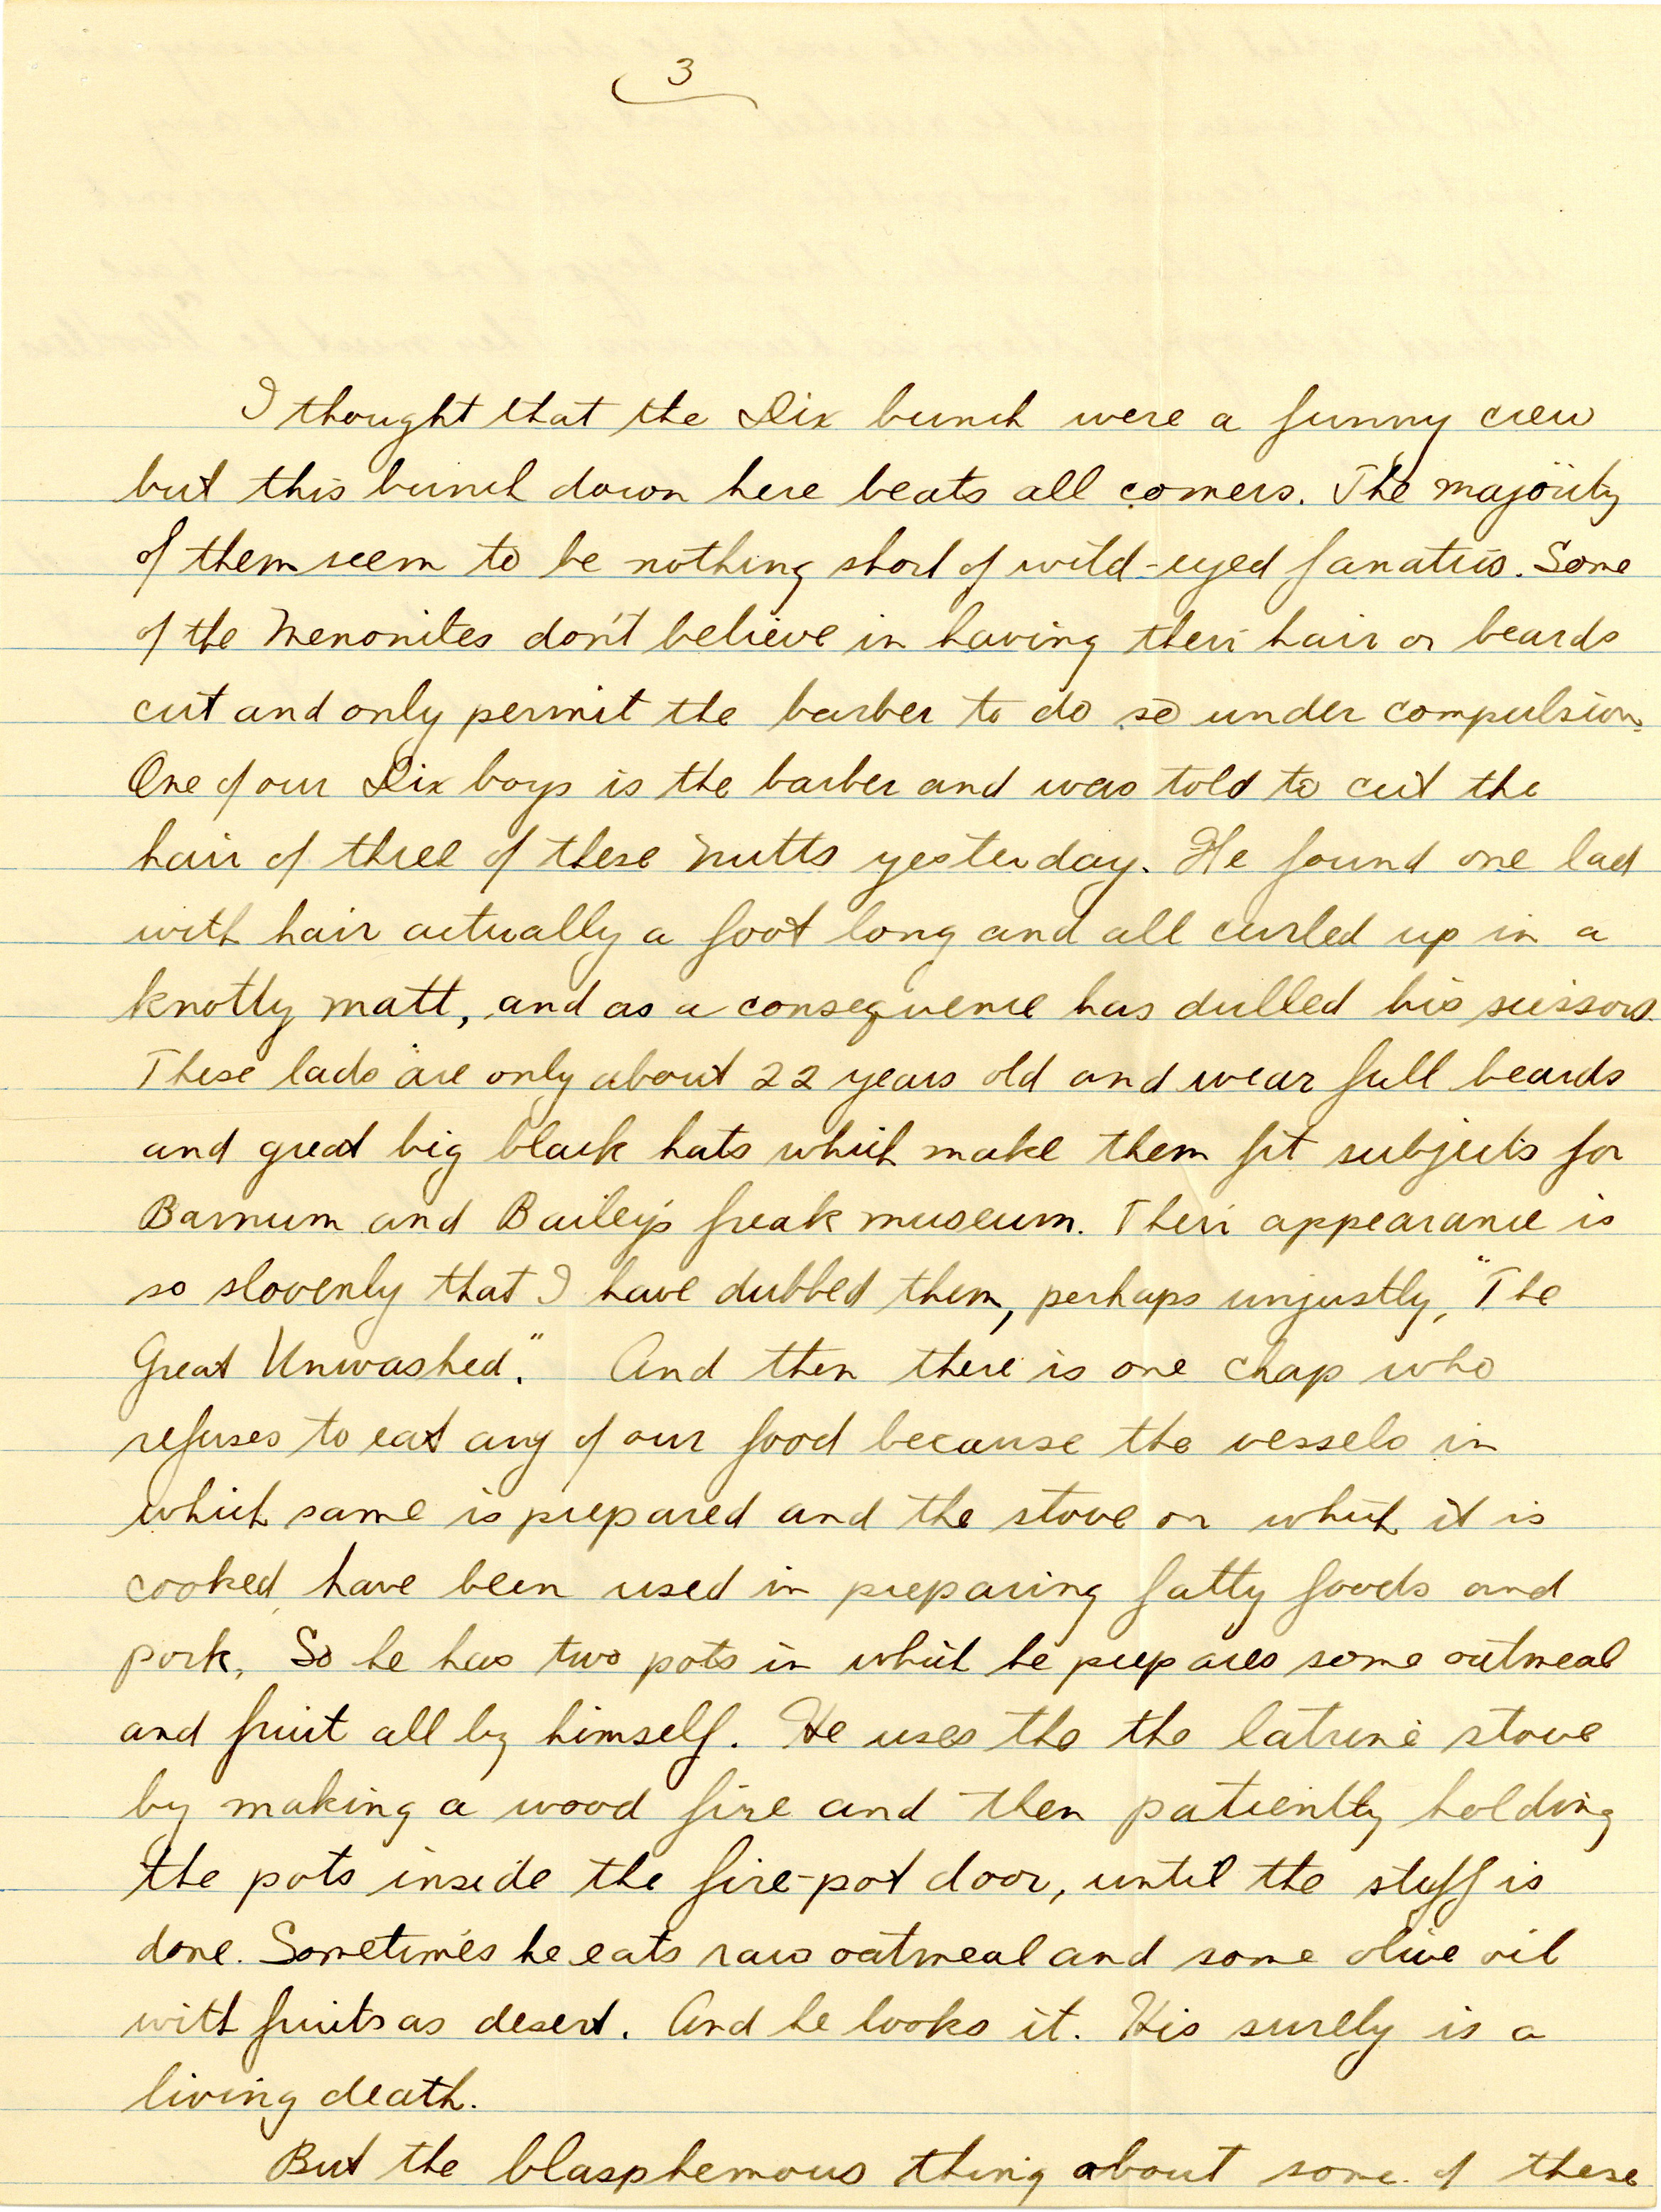 3
I thought that the Dix bunch were a funny crew
but this bunch down here beats all comers. The majority
of them seem to be nothing short of wild-eyed fanatics. Some
of the Menonites don't believe in having their hair or beards
cut and only permit the barber to do so under compulsion.
One of our Dix boys is the barber and was told to cut the
hair of three of these nutts yesterday. He found one lad
with hair actually a foot long and all curled up in a
knotty matt, and as a consequence has dulled his scissors.
These lads are only about 22 years old and wear full beards
and great big black hats which make them fit subjects for
Barnum and Bailey's freak museum. Their appearance is
so slovenly that I have dubbed them, perhaps unjustly, "The
Great Unwashed." And then there is one chap who
refuses to eat any of our food because the vessels in
which same is prepared and the stove on which it is
cooked have been used in preparing fatty foods and
pork. So he has two pots in which he prepares some oatmeal
and fruit all by himself. He uses the the latrine stove
by making a wood fire and then patiently holding
the pots inside the fire-pot door, until the stuff is
done. Sometimes he eats raw oatmeal and some olive oil
with fruits as desert. And he looks it. His surely is a
living death.
But the blasphemous thing about some of these